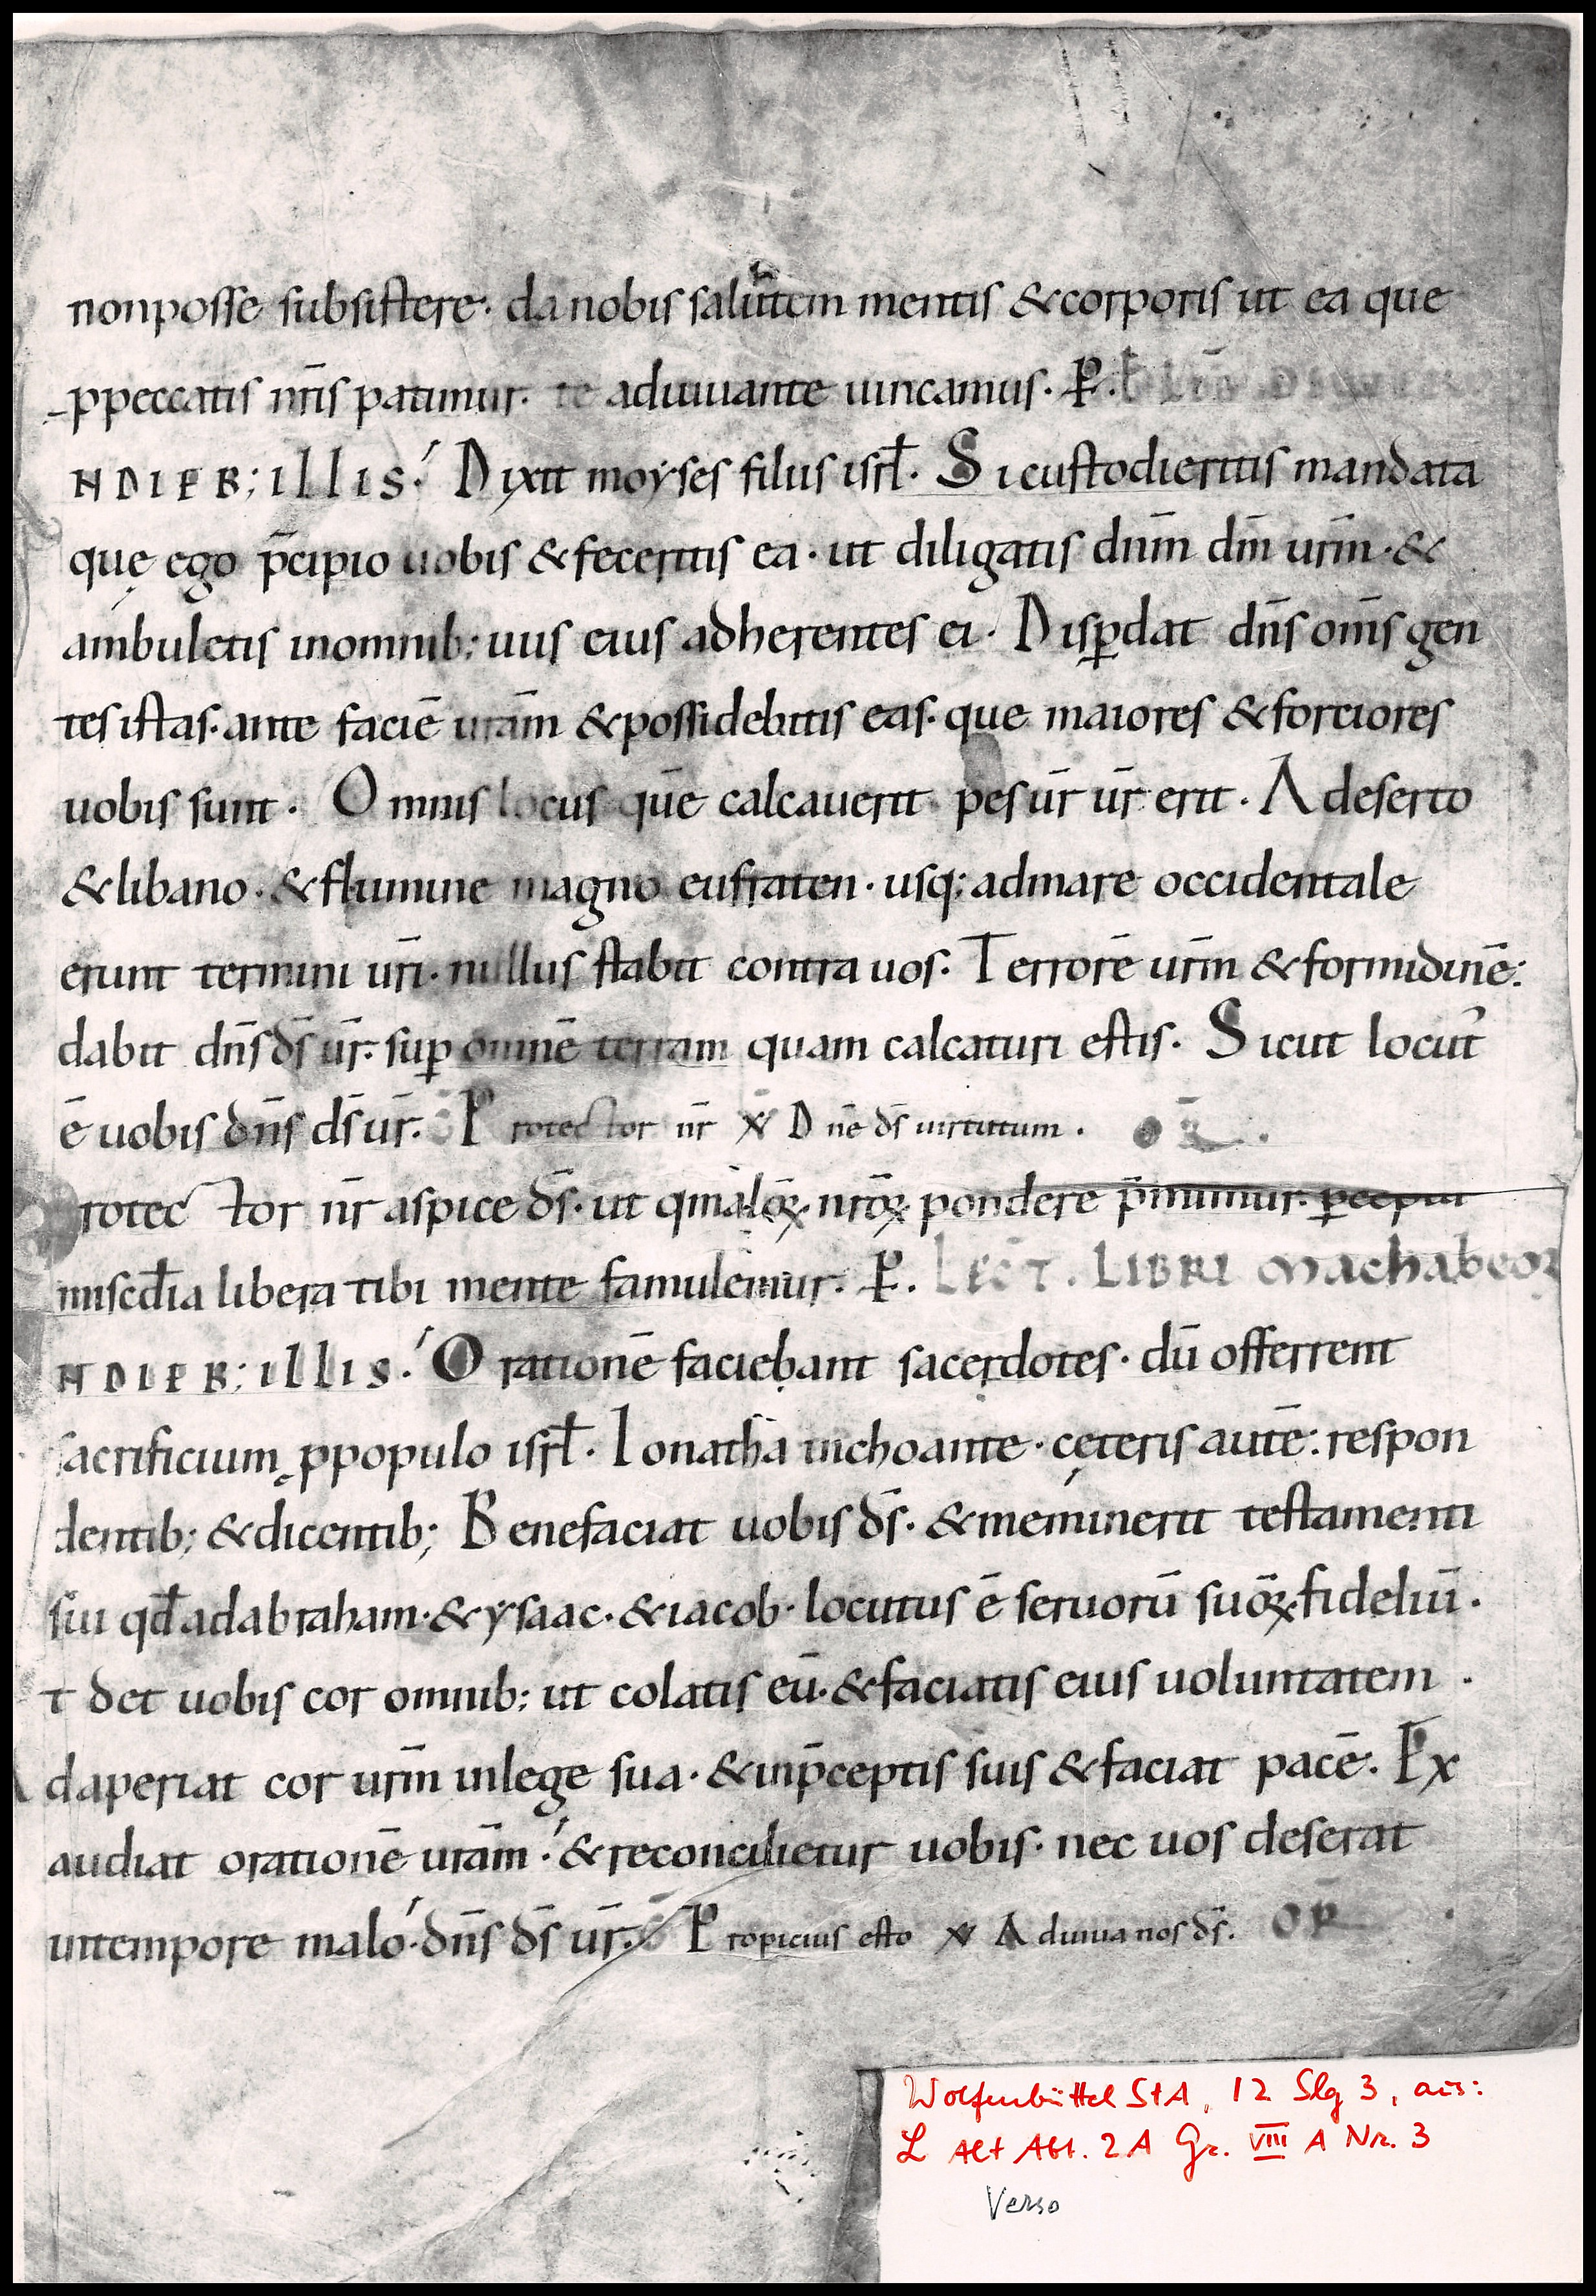 nonposse subsistere· da nobis salutem mentis &corporis ut ea que
ppeccatis nr̄is patimur. te adiuuante uincamus. P̱.
NDIEB; illis. Dixit moyses filiis isrł. Si custodieritis mandata
quę ego p̄cipio uobis &feceritis ea· ut diligatis dnm̄ dm̄ urm̄·&
ambuletis inomnib; uiis eius adherentes ei· Disꝑdat dn̄s om̄s gen
tes istas· ante faciē urām &possidebitis eas· que maiores &forciores
uobis sunt· Omnis locus quē calcauerit pes ur̄ ur̄ erit· A deserto
&libano·&flumine magno eufraten· usq; admare occidentale
erunt termini ur̄i· nullus stabit contra uos. Terrorē urm̄ &formidinē:
dabit dn̄s ds̄ ur̄· suꝑ omnē terram quam calcaturi estis. Sicut locut᾽
ē uobis dn̄s ds̄ ur̄. Protector nr̄ V̄ Dnē ds̄ uirtutum. OR̄.
rotector nr̄ aspice ds̄· ut qui malōꝝ nrōꝝ pondere p̄mimur· ꝑcepta
miscđia libera tibi mente famulemur. P̱. LECT. LIBRI Machabeoꝝ
NDIEB; illis. Orationē faciebant sacerdotes· dū offerrent
sacrificium ꝓpopulo isrł. Ionathā inchoante· cęteris autē: respon
dentib; &dicentib; Benefaciat uobis ds̄· &meminerit testamenti
sui qđ adabraham·&ysaac·&iacob· locutus ē seruorū suōꝝ fideliū.
t det uobis cor omnib; ut colatis eū·&faciatis eius uoluntatem.
Adaperiat cor urm̄ inlege sua·&inp̄ceptis suis &faciat pacē. Ex
audiat orationē urām·&reconcilietur uobis· nec uos deserat
intempore malo· dn̄s ds̄ ur̄. Propicius esto V̄ Adiuua nos ds̄. OR̄
Wolfenbüttel StA, 12 Slg 3, aus:
L Alt Abt. 2A Gr. VIII A Nr. 3
Verso